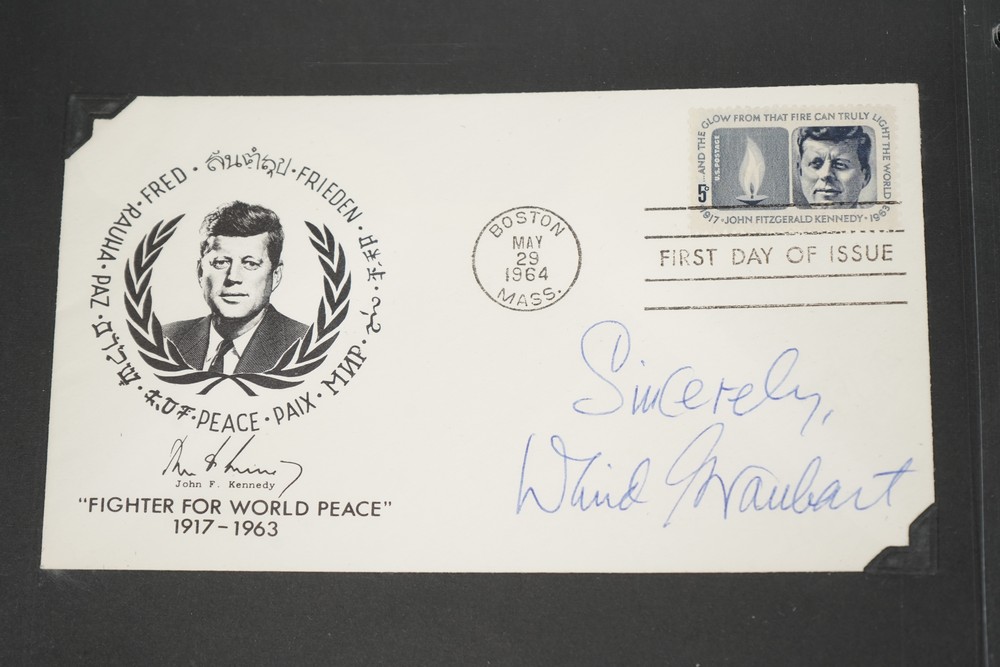 สันติภาพ · FRIEDEN ·
МИР · PAIX · PEACE ·
PAZ · RAUHA · FRED ·
John F. Kennedy
"FIGHTER FOR WORLD PEACE"
1917-1963
BOSTON
MAY
29
1964
MASS.
...AND THE GLOW FROM THAT FIRE CAN TRULY LIGHT THE WORLD
U.S. POSTAGE
5¢
1917 · JOHN FITZGERALD KENNEDY · 1963
FIRST DAY OF ISSUE
Sincerely,